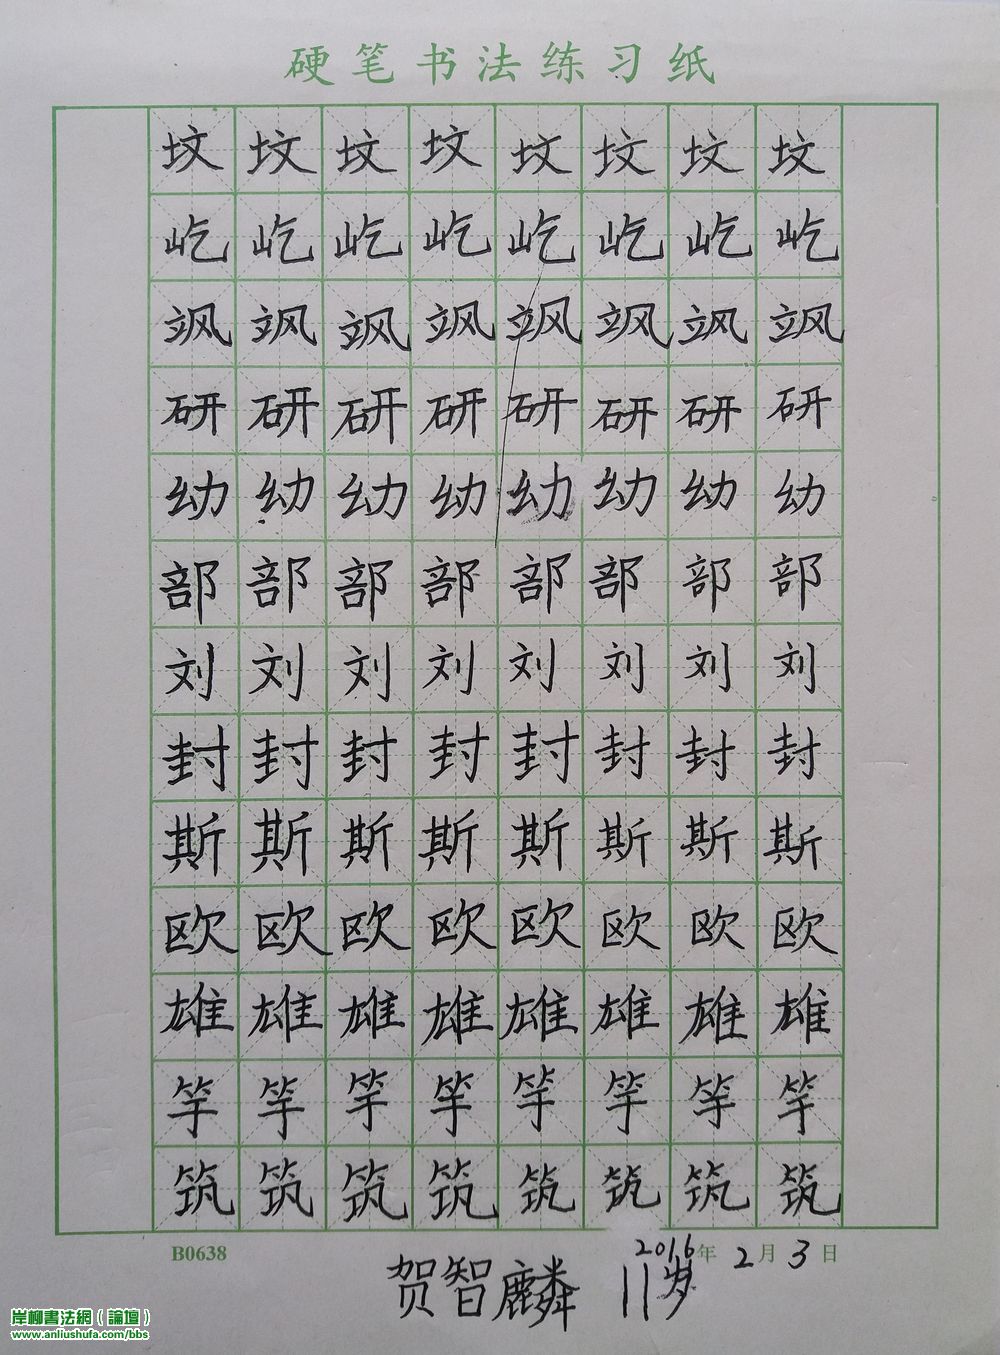 硬笔书法练习纸
坟坟坟坟坟坟坟坟
屹屹屹屹屹屹屹屹
飒飒飒飒飒飒飒飒
研研研研研研研研
幼幼幼幼幼幼幼幼
部部部部部部部部
刘刘刘刘刘刘刘刘
封封封封封封封封
斯斯斯斯斯斯斯斯
欧欧欧欧欧欧欧欧
雄雄雄雄雄雄雄雄
竿竿竿竿竿竿竿竿
筑筑筑筑筑筑筑筑
B0638 2016年2月3日
贺智麟 11岁
岸柳書法網(論壇)
www.anliushufa.com/bbs